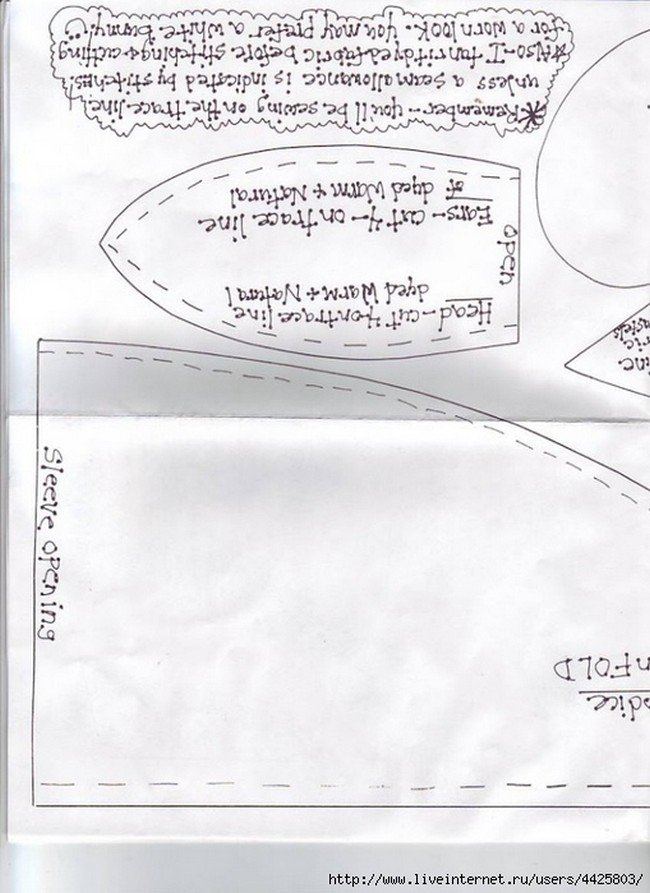 *Remember - you'll be sewing on the trace line!
unless a seam allowance is indicated by stitches.
*Also - I tan rit dyed fabric before stitching + cutting
for a worn look. You may prefer a white bunny!
Head - cut 4 on trace line
dyed Warm + Natural
Ears - cut 4 - on trace line
of dyed Warm + Natural
open
Sleeve opening
odice
n FOLD
http://www.liveinternet.ru/users/4425803/